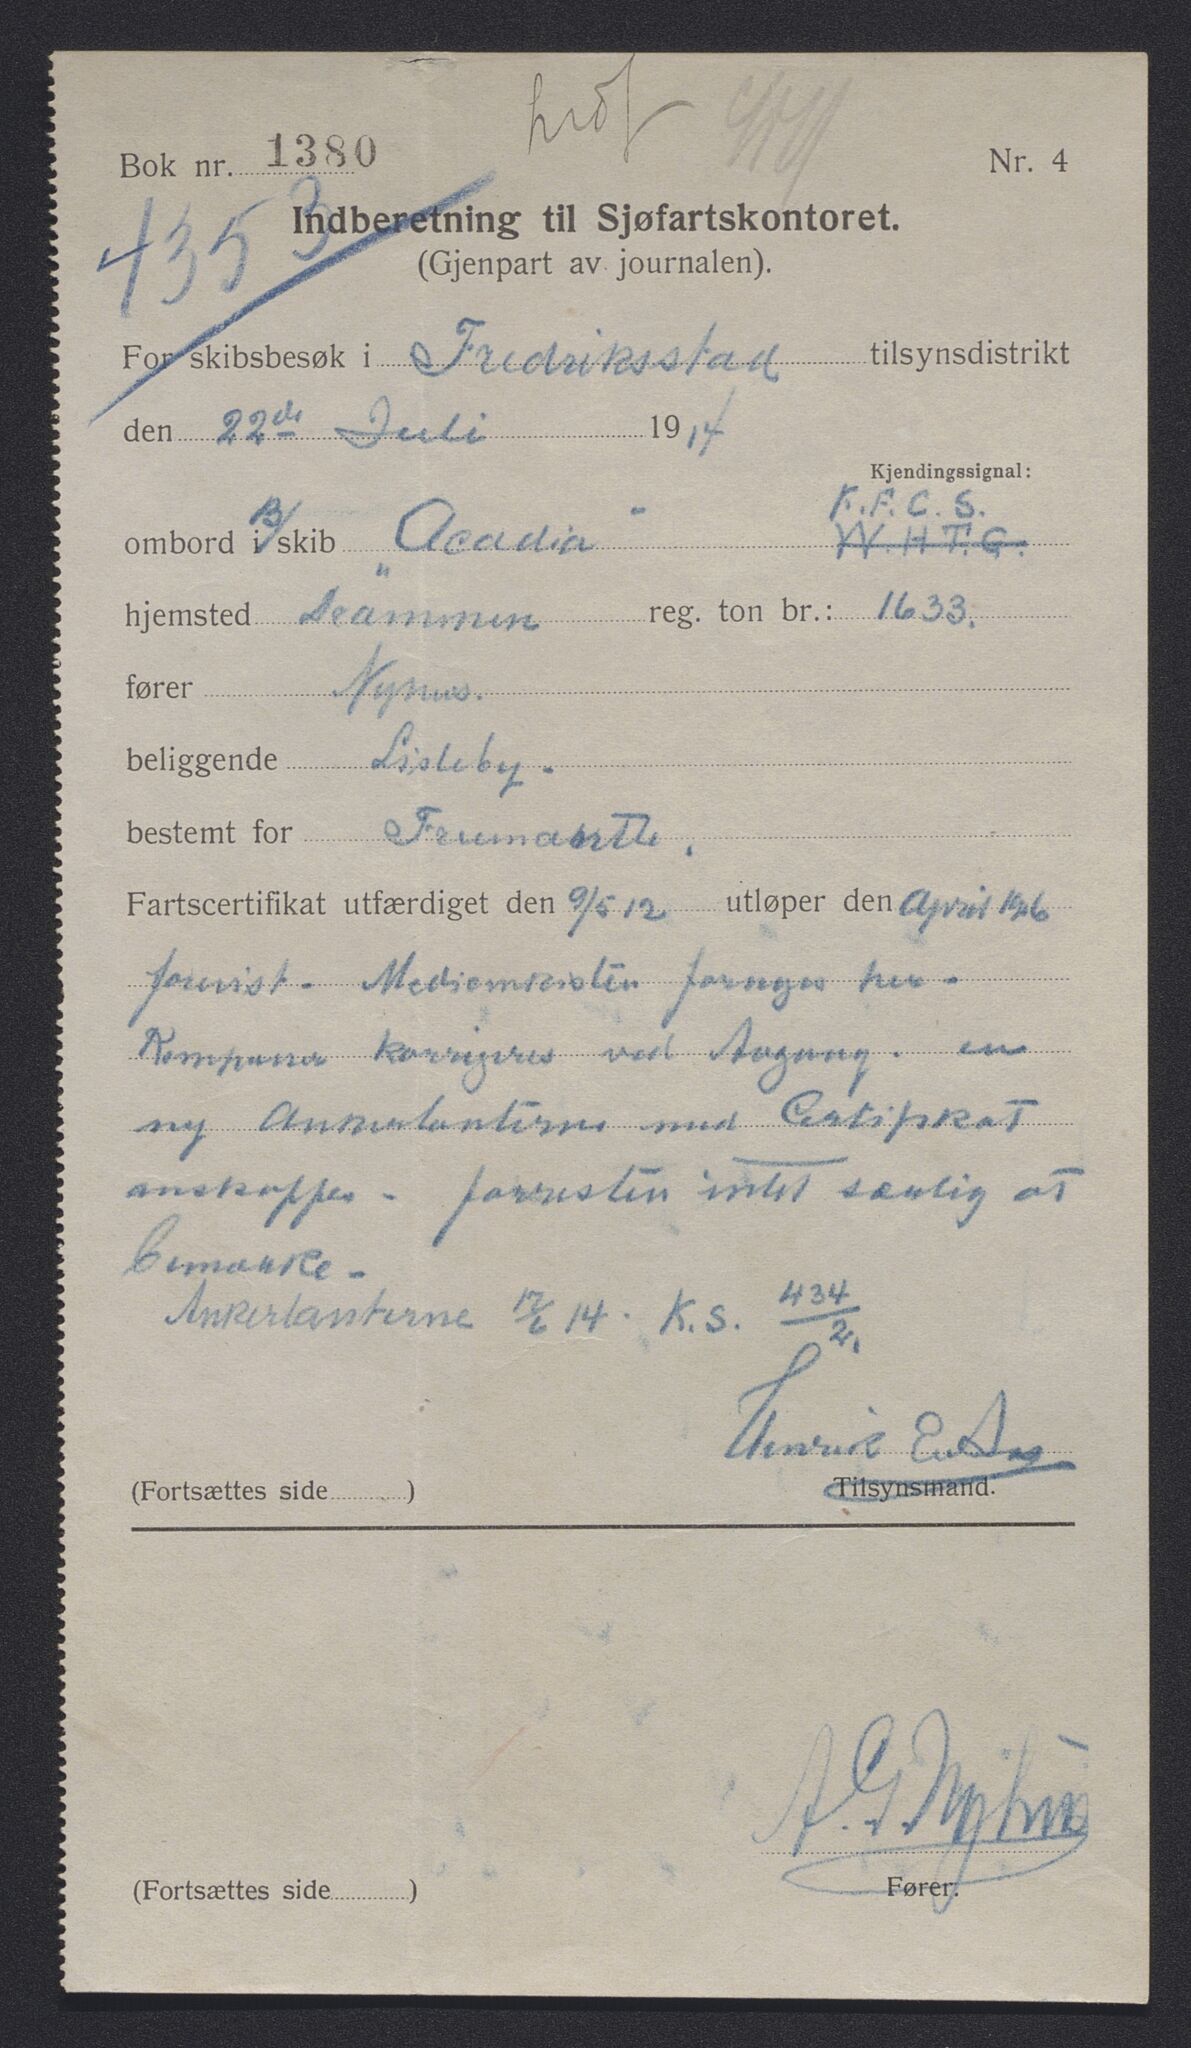 Bok nr. 1380
Nr. 4
4353
Indberetning til Sjøfartskontoret.
(Gjenpart av journalen).
For skibsbesøk i Fredriksstad tilsynsdistrikt
den 22de Juli 1914
Kjendingssignal:
K.F.C.S.
ombord i B/skib "Acadia" W.H.T.G.
hjemsted Drammen reg. ton br.: 1633.
fører
beliggende Lisleby.
bestemt for
Fartscertifikat utfærdiget den 9/5 12 utløper den April 1916
forevist. Medicinkisten fornyes her.
Kompasser korrigeres ved Avgang. en
ny Ankerlanterne med Certifikat
anskaffes. forresten intet særlig at
bemærke.
Ankerlanterne 12/6 14. K.S. 434/2.
Henrik E. Aas
(Fortsættes side )
Tilsynsmand.
A. G.
(Fortsættes side )
Fører.